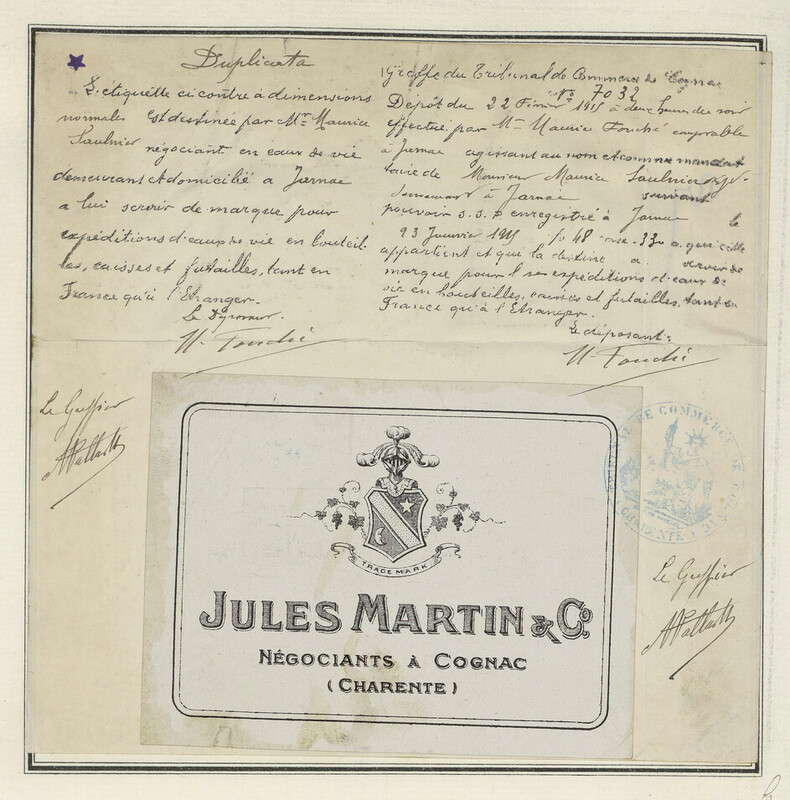 Duplicata
L'étiquette ci contre à dimensions
normales est destinée par Mr. Maurice
Saulnier négociant en eaux de vie
demeurant et domicilié a Jarnac
a lui servir de marque pour
expéditions d'eaux de vie en bouteil-
les, caisses et futailles, tant en
France qu'à l'Etranger.
Le Déposant.
M. Fouché
Greffe du Tribunal de Commerce de Cognac
No 7032
Dépôt du 22 Février 1915 à deux heures du soir
effectué par Mr Maurice Fouché comptable
à Jarnac agissant au nom et comme manda-
taire de Monsieur Maurice Saulnier
demeurant à Jarnac suivant
pouvoir s.s.p enregistré à Jarnac le
23 Janvier 1915 fo 48 case 330 a qui elle
appartient et qui la destine a servir de
marque pour ses expéditions d'eaux de
vie en bouteilles, caisses et futailles, tant en
France qu'à l'Etranger.
Le déposant:
M. Fouché
Le Greffier
TRIBUNAL DE COMMERCE DE COGNAC
(CHARENTE)
TRADE MARK
JULES MARTIN & Co.
NÉGOCIANTS À COGNAC
(CHARENTE)
Le Greffier